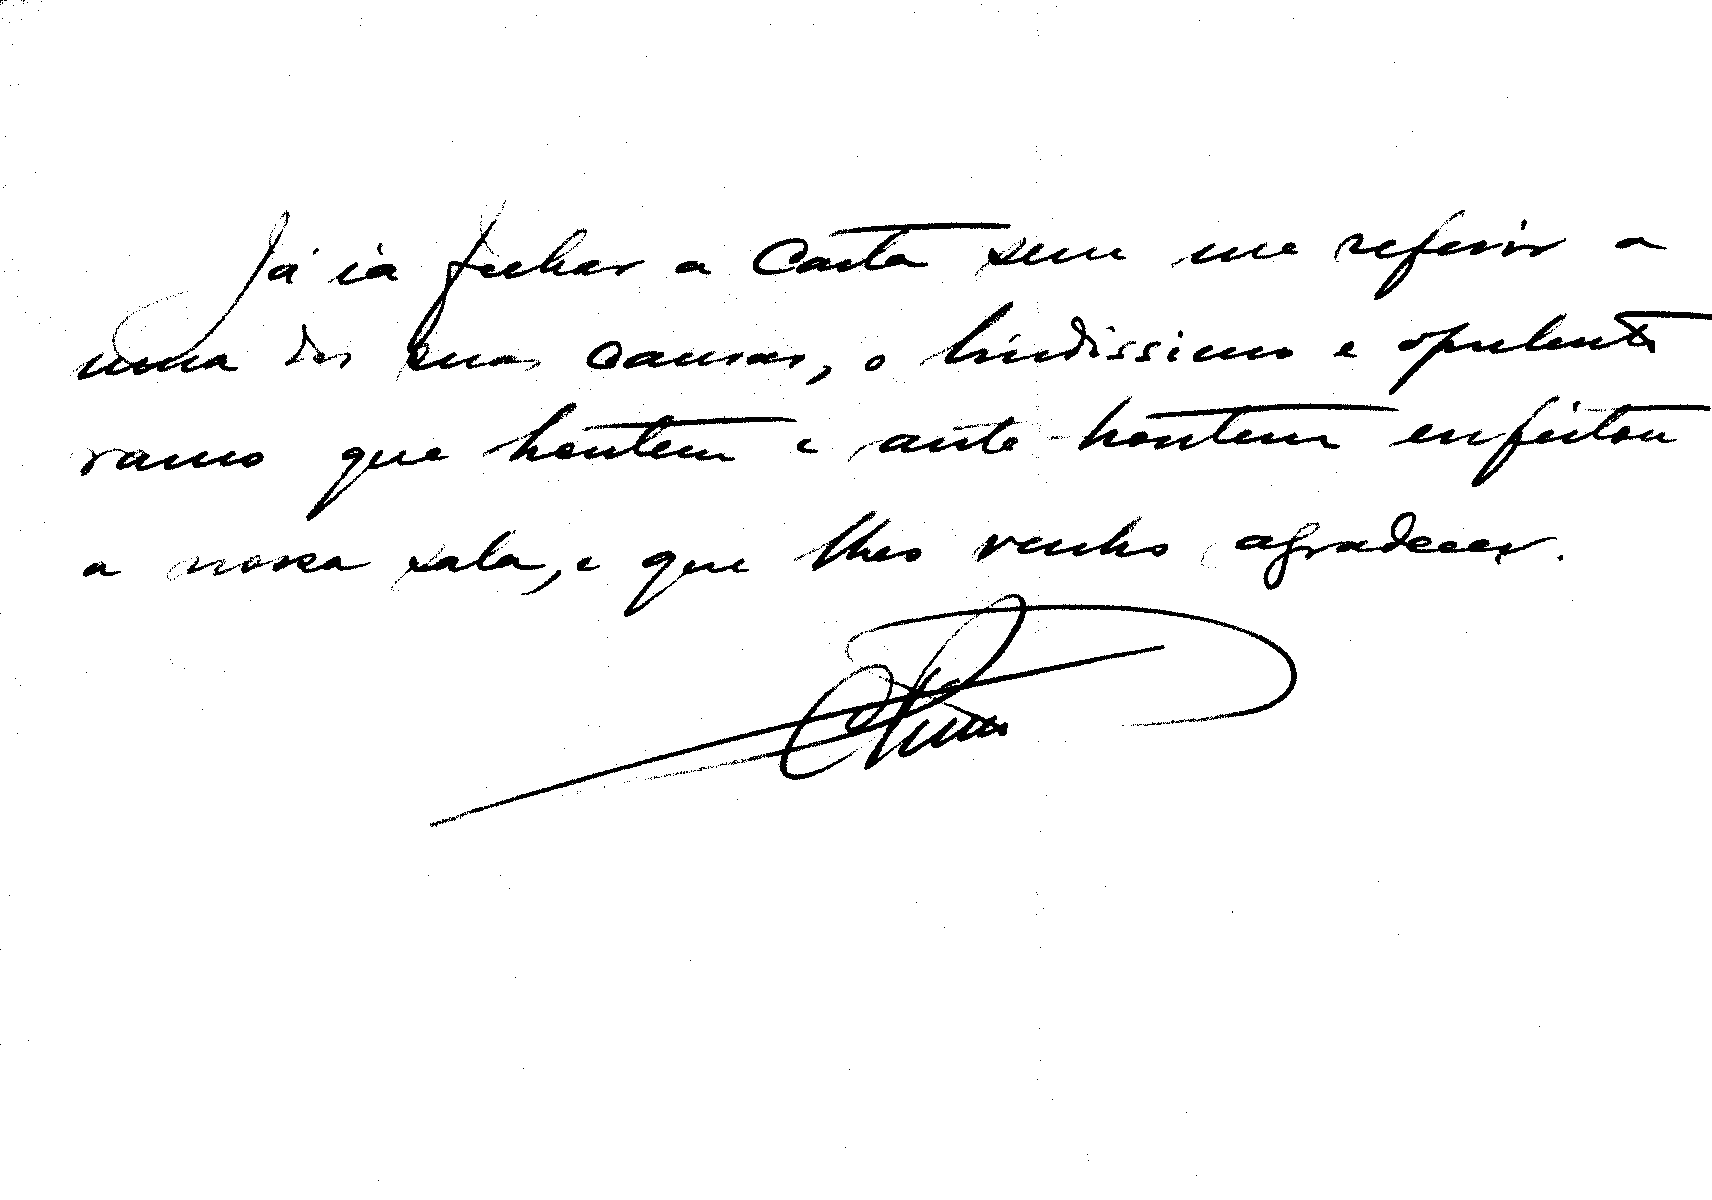 Já ia fechar a carta sem me referir a
uma das suas causas, o lindissimo e opulento
ramo que hontem e ante-hontem enfeitou
a nossa sala, e que lhes venho agradecer.